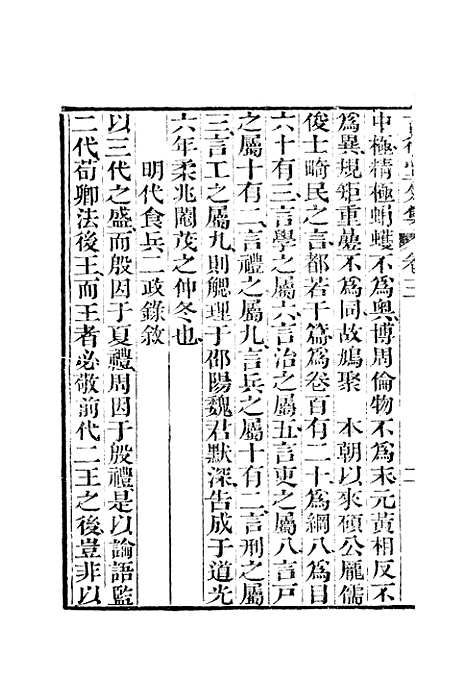 古微堂外集 卷三 二
中極精極蜎蠖不爲奧博周倫物不爲末元黃相反不
爲異規矩重疊不爲同故鳩聚 本朝以來碩公龐儒
俊士畸民之言都若干篇爲卷百有二十爲綱八爲目
六十有三言學之屬六言治之屬五言吏之屬八言戶
之屬十有二言禮之屬九言兵之屬十有二言刑之屬
三言工之屬九則䚡理于邵陽魏君默深告成于道光
六年柔兆閹茂之仲冬也
明代食兵二政錄敘
以三代之盛而殷因于夏禮周因于殷禮是以論語監
二代荀卿法後王而王者必敬前代二王之後豈非以